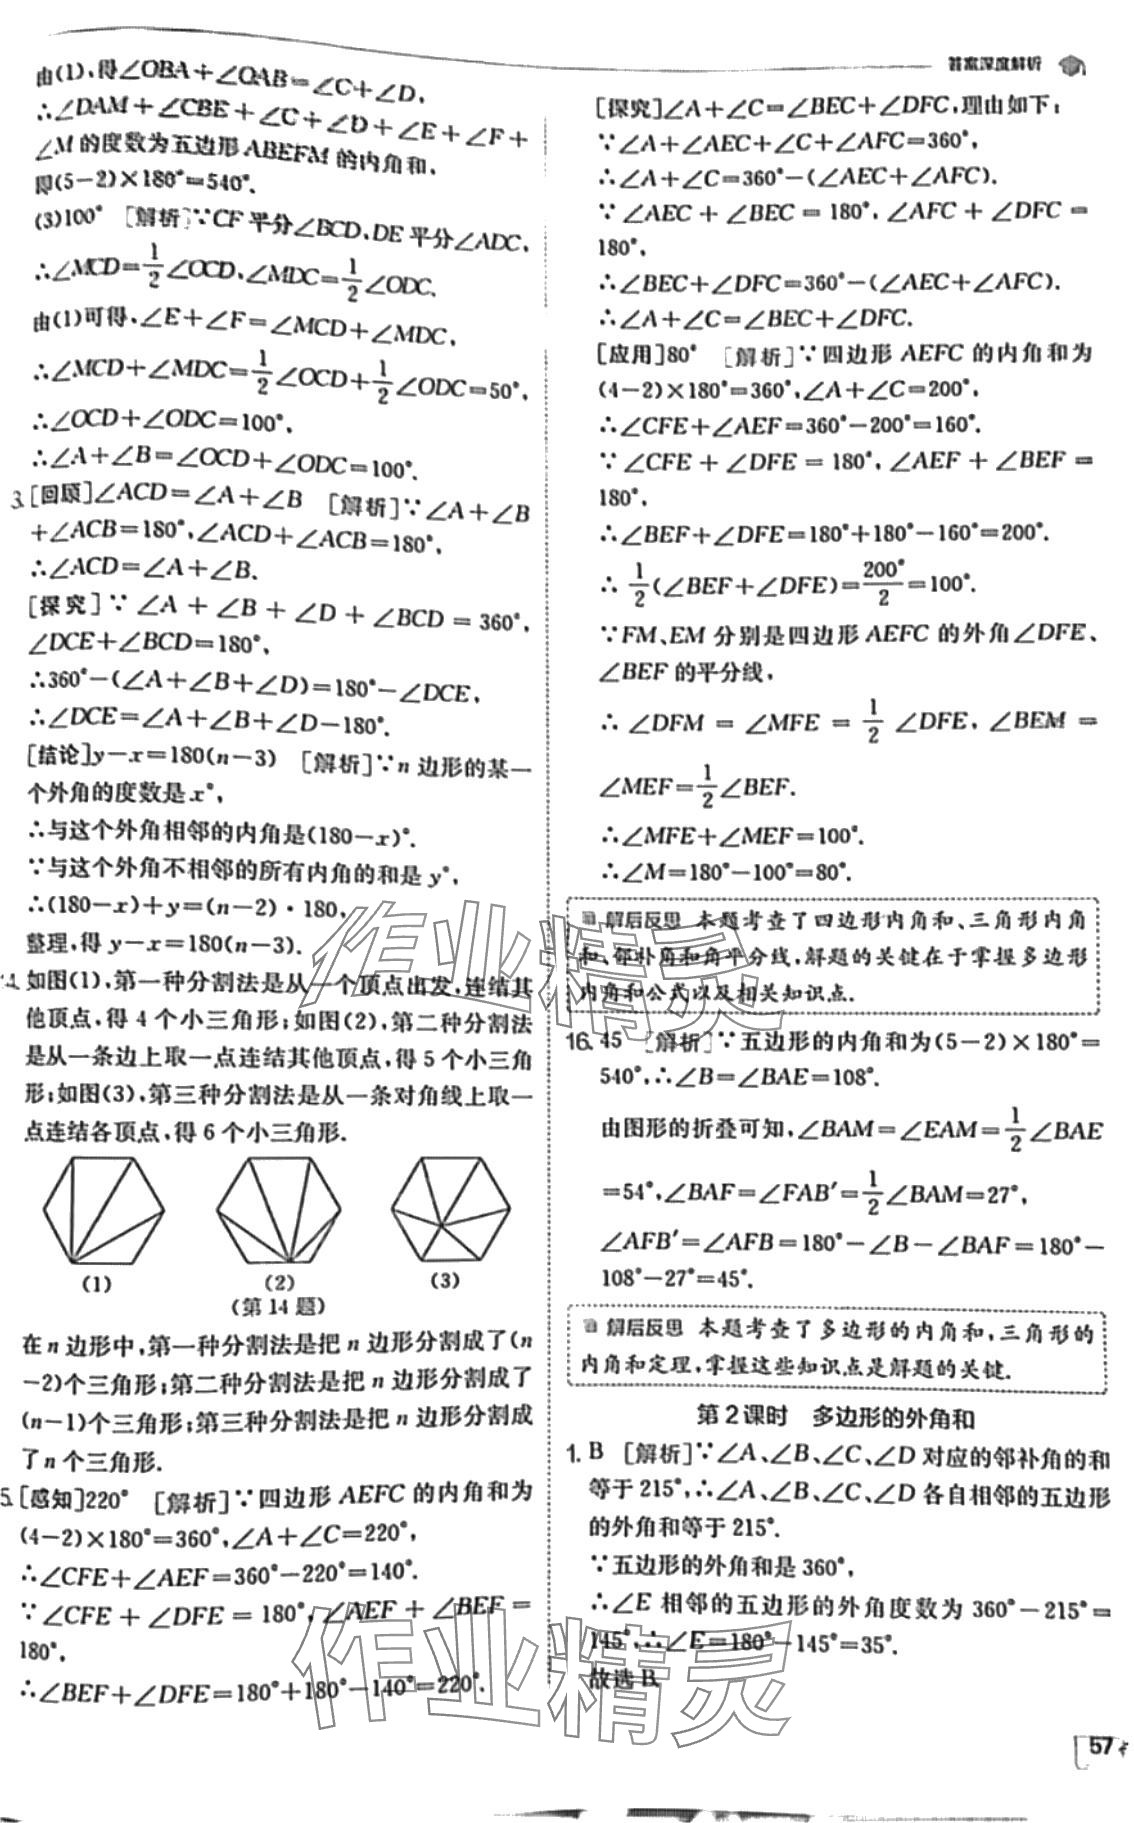 答案深度解析
由(1),得∠OBA+∠OAB=∠C+∠D,
∴∠DAM+∠CBE+∠C+∠D+∠E+∠F+
∠M的度数为五边形ABEFM的内角和,
即(5-2)×180°=540°.
(3)100° [解析]∵CF平分∠BCD,DE平分∠ADC,
∴∠MCD=1/2∠OCD,∠MDC=1/2∠ODC.
由(1)可得,∠E+∠F=∠MCD+∠MDC,
∴∠MCD+∠MDC=1/2∠OCD+1/2∠ODC=50°,
∴∠OCD+∠ODC=100°,
∴∠A+∠B=∠OCD+∠ODC=100°.
3.[回顾]∠ACD=∠A+∠B [解析]∵∠A+∠B
+∠ACB=180°,∠ACD+∠ACB=180°,
∴∠ACD=∠A+∠B.
[探究]∵∠A+∠B+∠D+∠BCD=360°,
∠DCE+∠BCD=180°,
∴360°-(∠A+∠B+∠D)=180°-∠DCE,
∴∠DCE=∠A+∠B+∠D-180°.
[结论]y-x=180(n-3) [解析]∵n边形的某一
个外角的度数是x°,
∴与这个外角相邻的内角是(180-x)°.
∵与这个外角不相邻的所有内角的和是y°,
∴(180-x)+y=(n-2)·180,
整理,得y-x=180(n-3).
14.如图(1),第一种分割法是从一个顶点出发,连结其
他顶点,得4个小三角形;如图(2),第二种分割法
是从一条边上取一点连结其他顶点,得5个小三角
形;如图(3),第三种分割法是从一条对角线上取一
点连结各顶点,得6个小三角形.
(1) (2) (3)
(第14题)
在n边形中,第一种分割法是把n边形分割成了(n
-2)个三角形;第二种分割法是把n边形分割成了
(n-1)个三角形;第三种分割法是把n边形分割成
了n个三角形.
5.[感知]220° [解析]∵四边形AEFC的内角和为
(4-2)×180°=360°,∠A+∠C=220°,
∴∠CFE+∠AEF=360°-220°=140°.
∵∠CFE+∠DFE=180°,∠AEF+∠BEF=
180°,
∴∠BEF+∠DFE=180°+180°-140°=220°.
[探究]∠A+∠C=∠BEC+∠DFC,理由如下:
∵∠A+∠AEC+∠C+∠AFC=360°,
∴∠A+∠C=360°-(∠AEC+∠AFC).
∵∠AEC+∠BEC=180°,∠AFC+∠DFC=
180°,
∴∠BEC+∠DFC=360°-(∠AEC+∠AFC).
∴∠A+∠C=∠BEC+∠DFC.
[应用]80° [解析]∵四边形AEFC的内角和为
(4-2)×180°=360°,∠A+∠C=200°,
∴∠CFE+∠AEF=360°-200°=160°.
∵∠CFE+∠DFE=180°,∠AEF+∠BEF=
180°,
∴∠BEF+∠DFE=180°+180°-160°=200°.
∴1/2(∠BEF+∠DFE)=200°/2=100°.
∵FM、EM分别是四边形AEFC的外角∠DFE、
∠BEF的平分线,
∴∠DFM=∠MFE=1/2∠DFE,∠BEM=
∠MEF=1/2∠BEF.
∴∠MFE+∠MEF=100°.
∴∠M=180°-100°=80°.
解后反思 本题考查了四边形内角和、三角形内角
和、邻补角和角平分线,解题的关键在于掌握多边形
内角和公式以及相关知识点.
16.45 [解析]∵五边形的内角和为(5-2)×180°=
540°,∴∠B=∠BAE=108°.
由图形的折叠可知,∠BAM=∠EAM=1/2∠BAE
=54°,∠BAF=∠FAB′=1/2∠BAM=27°,
∠AFB′=∠AFB=180°-∠B-∠BAF=180°-
108°-27°=45°.
解后反思 本题考查了多边形的内角和,三角形的
内角和定理,掌握这些知识点是解题的关键.
第2课时 多边形的外角和
1.B [解析]∵∠A、∠B、∠C、∠D对应的邻补角的和
等于215°,∴∠A、∠B、∠C、∠D各自相邻的五边形
的外角和等于215°.
∵五边形的外角和是360°,
∴∠E相邻的五边形的外角度数为360°-215°=
145°,∴∠E=180°-145°=35°.
故选B.
57
作业精灵
作业精灵